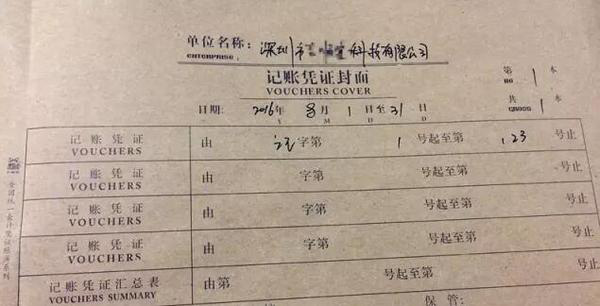 单位名称：深圳市 科技有限公司
ENTERPRISE:
记账凭证封面
VOUCHERS COVER
第 1 本
NO
共 1 本
GROSS
日期：2016年 8月 1日至31日
Y M D D
记账凭证 由 记字第 1 号起至第 123 号止
VOUCHERS
记账凭证 由 字第 号起至第 号止
VOUCHERS
记账凭证 由 字第 号起至第 号止
VOUCHERS
记账凭证 由 字第 号起至第 号止
VOUCHERS
记账凭证汇总表 由第 号起至第 号止
VOUCHERS SUMMARY
保管：
全国统一会计凭证账簿系列